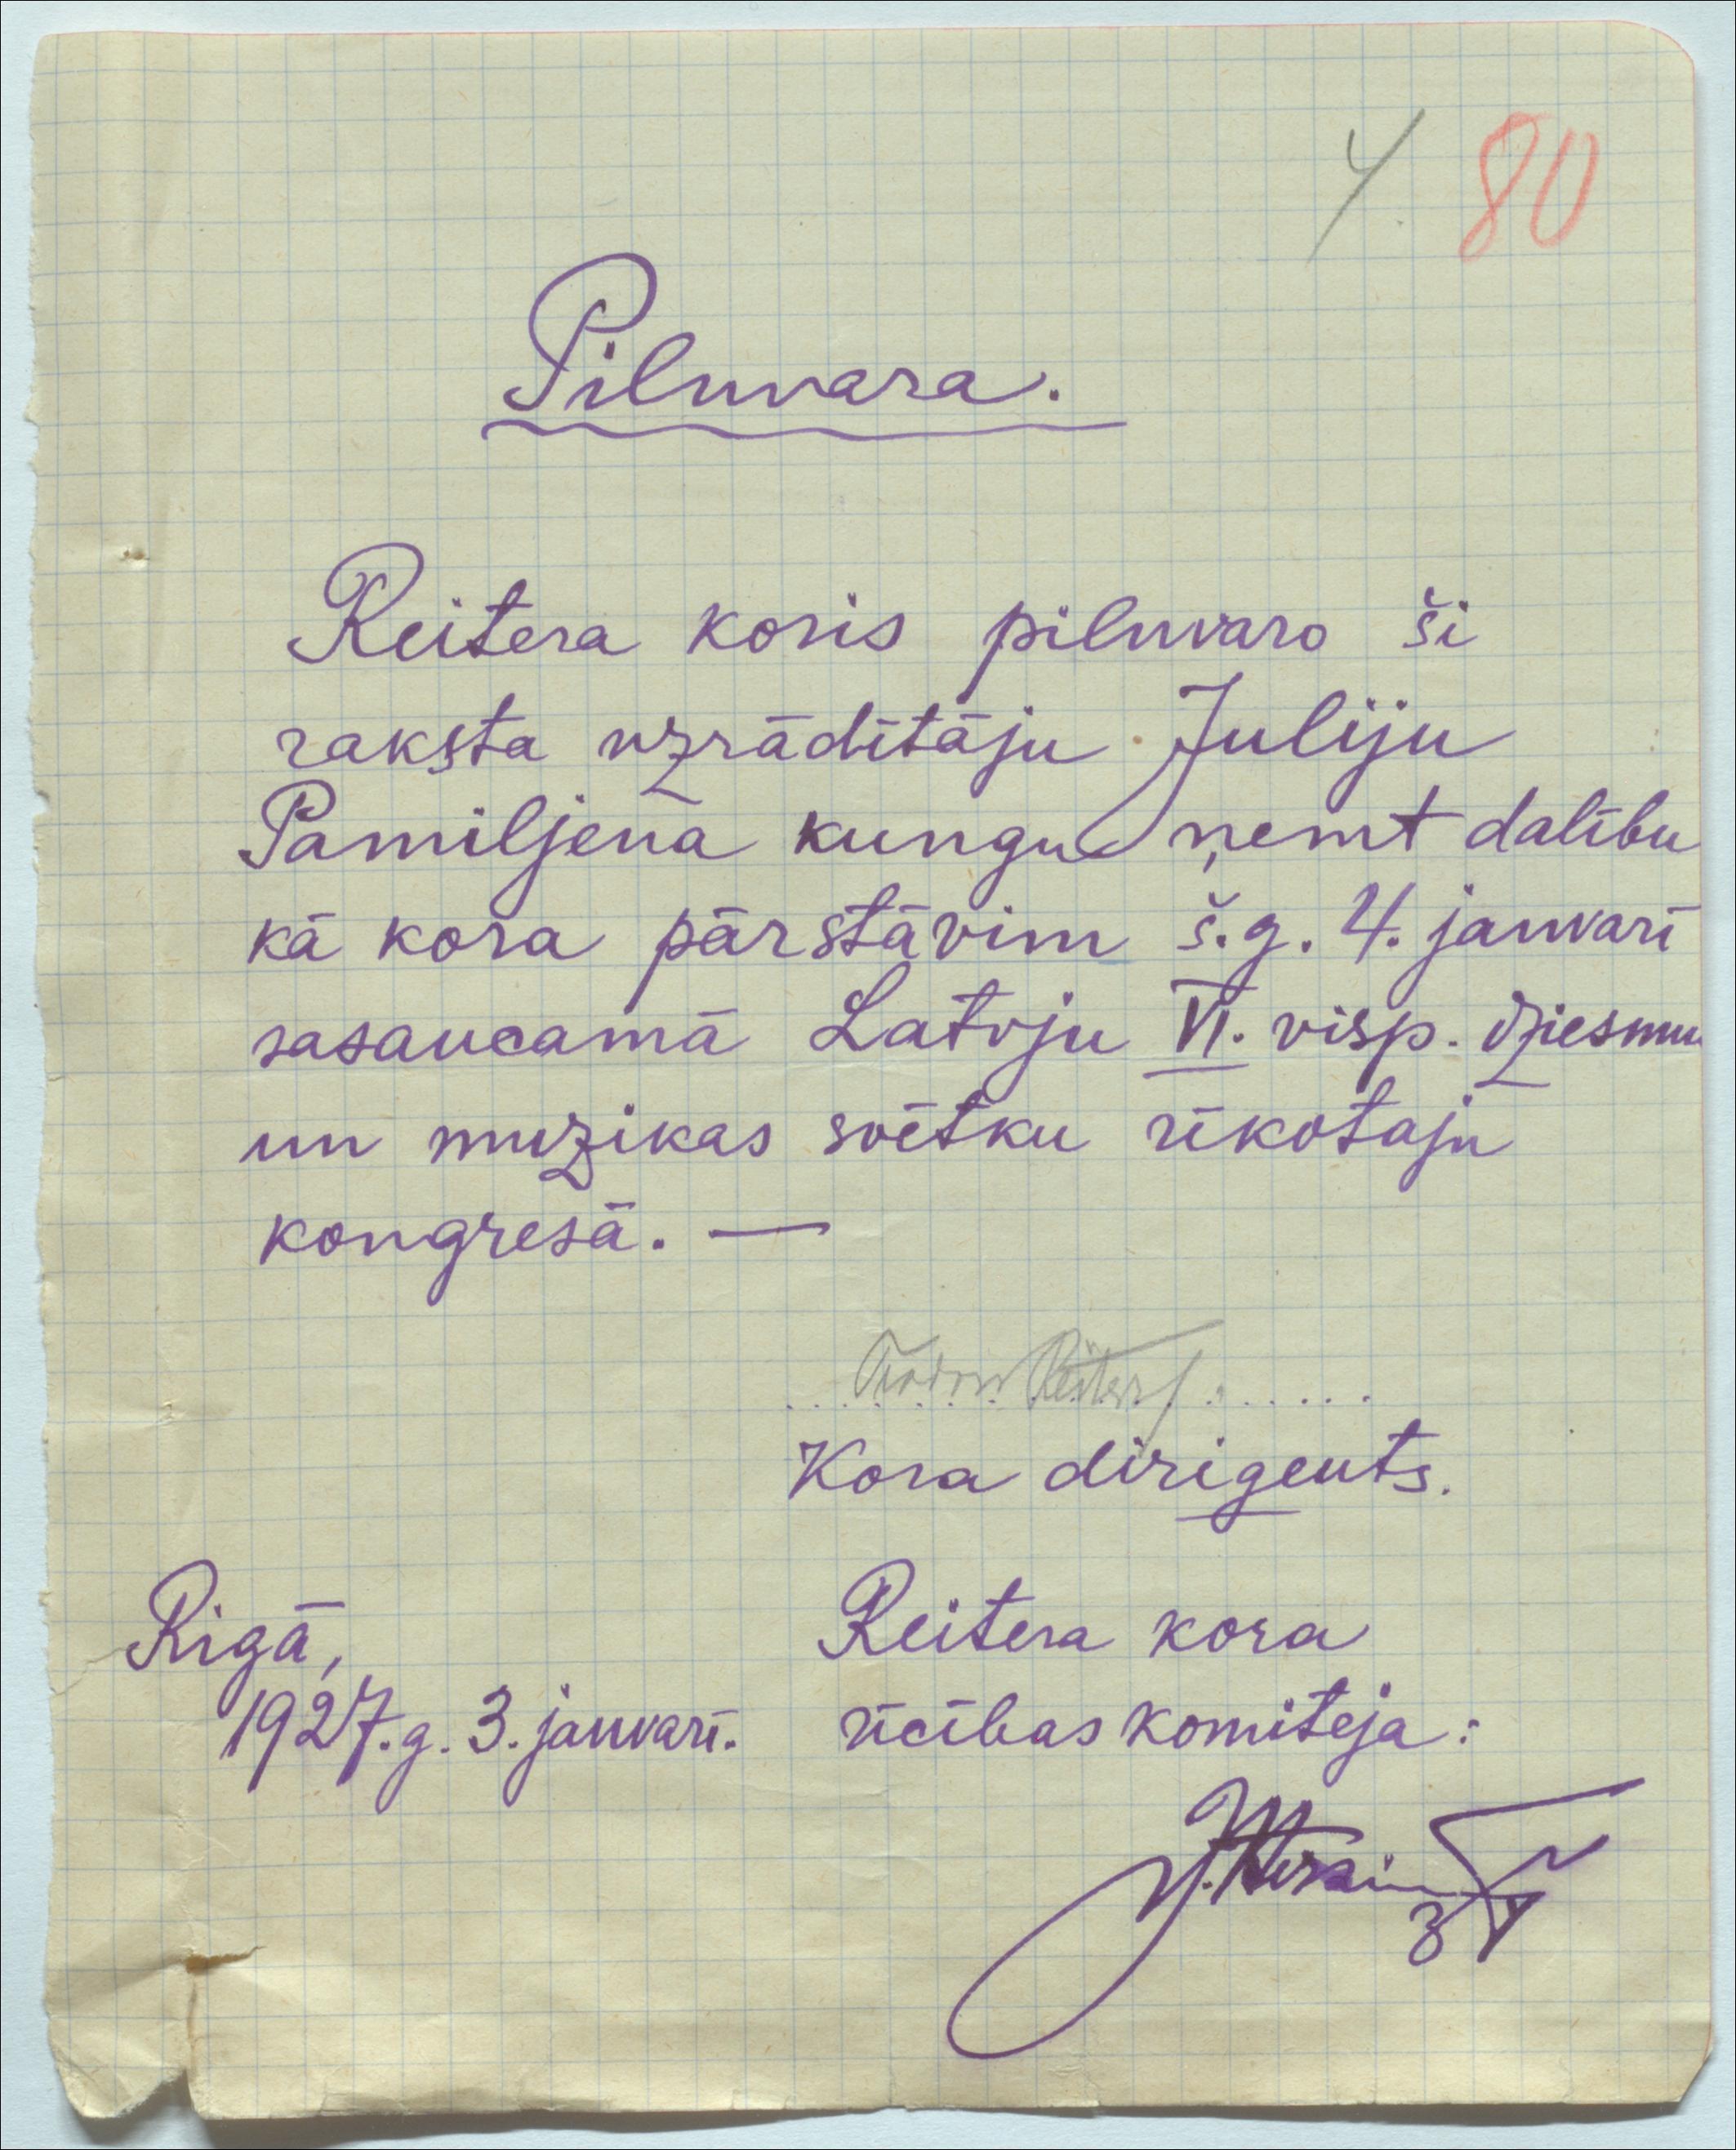 4. 80
Pilnvara.
Reitera koris pilnvaro ši
raksta uzrādītāju Juliju
Pamiljena kungu ņemt dalību
kā kora pārstāvim š.g. 4. janvarī
sasaucamā Latvju VI. visp. dziesmu
un muzikas svētku rīkotaju
kongresā. —
Teodors Reiters
Kora dirigents.
Rigā,
1927. g. 3. janvarī.
Reitera kora
rīcības komiteja: